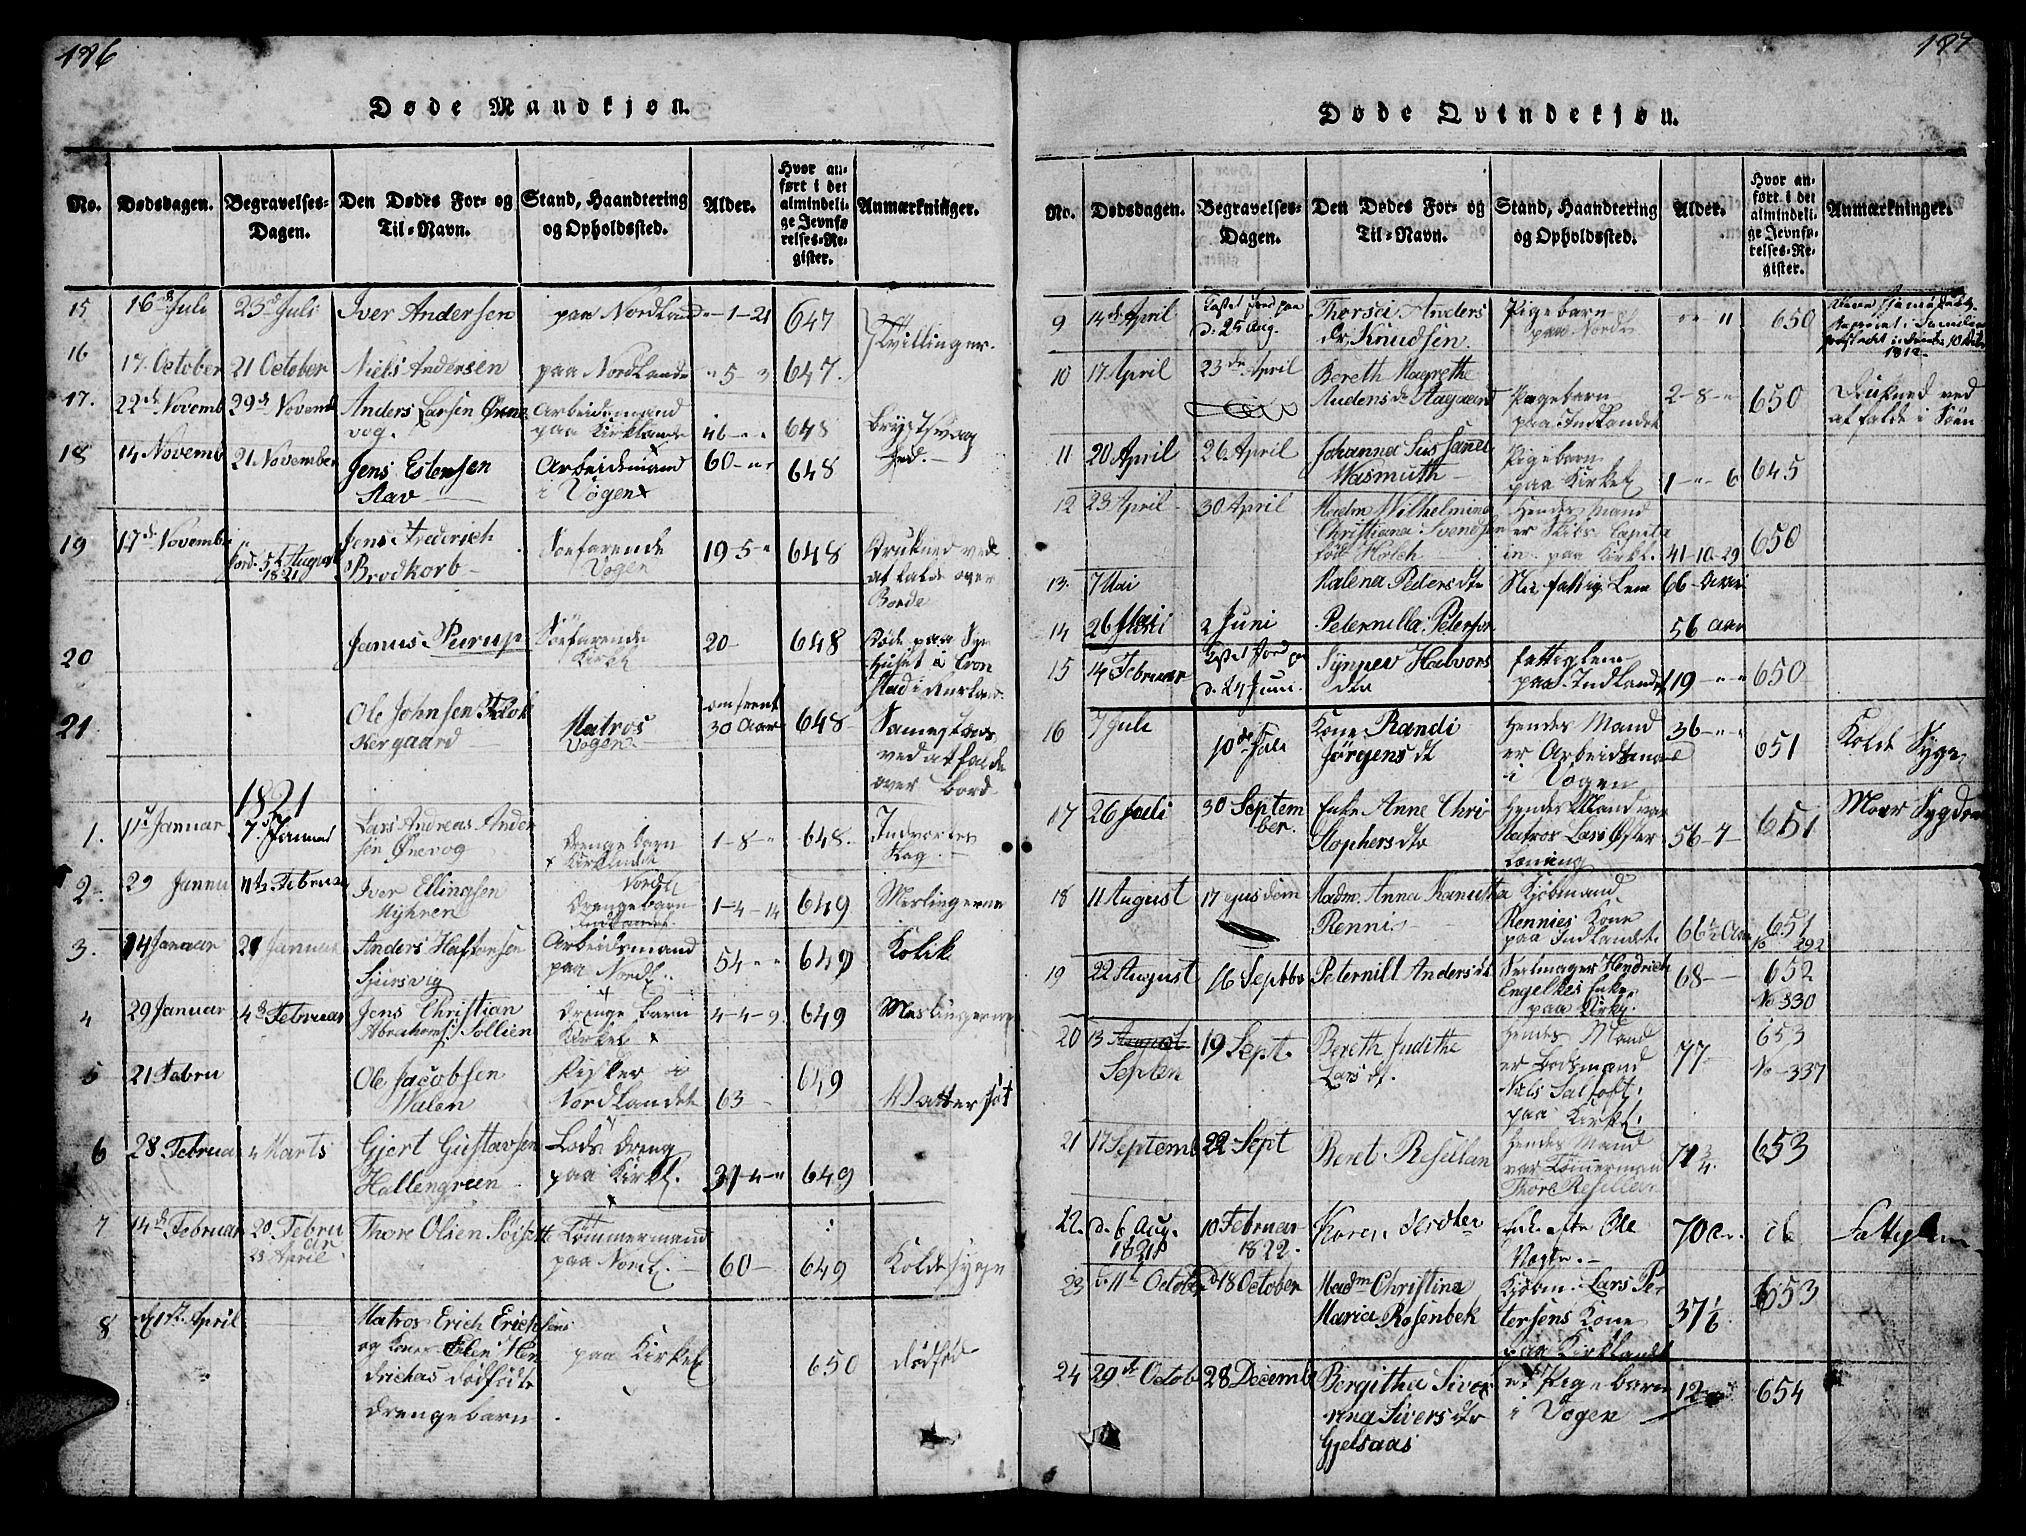 186
Døde Mandkjøn.
No. Dødsdagen. Begravelses-Dagen. Den Dødes For- og Til-Navn. Stand, Haandtering og Opholdssted. Alder. Hvor anført i det almindelige Jevnførelses-Register. Anmærkninger.
15 16 d Juli 23 d Juli Iver Andersen paa Nordland " - 1 - 21 647 Tvillinger.
16 17. October 21 October Niels Andersen paa Nordlande " 5 - 3 647.
17. 22 d Novemb 29 d Novemb Anders Larsen Ørne
vog. Arbeidsmand
paa Kirklande 46 - " " 648 Brystsvag
hed.
18 14 Novemb 21. November Jens Estensen
Aav Arbeidsmand
i Vogen 60 - " " 648
19 17 d Novemb Jord. 5 t August
1821 Jens Frederich
Brodkorb Søefarende
Vogen 19 - 5 - " 648 Drukned ved
at falde over
Borde
20 Janus Purup Søefarende
Kirkl 20 - 648 Døde paa Syge
Huset i Cron
stad i
21 Ole Johnsen
Kiergaard Matros
Vogen omtrent
30 Aar 648 Sammesteds
ved at falde
over Bord
1821
1. 1 st Januar 7 d Januar Lars Andreas Ander
sen Ørevog Drenge barn
Kirklandet 1 - 8 - " 648. Indvortes
Slag.
2. 29 Janu 11 te Februar Iver Ellingsen
Myhren Nordl
Drengebarn
Indlandet 1 - 4 - 14 649 Meslingerne
3. 14 Januar 21 Januar Anders Haftorsen
Sjursvig Arbeidsmand
paa Nordl. 54 - " " 649 Kolik
4 29 Januar 4 d Februar Jens Christian
Abrahams. Sollien Drenge barn
Kirkel 4 - 4 - 9. 649 Meslingerne
5 21 Febru Ole Jacobsen
Walen Fisker i
Nordlandet 63 - 649 Vattersot
6 28 Februa 4 Marts Gjert Gustavsen
Hallengreen Lods dreng
paa Kirkl. 31 - 4 - " 649
7 14 d Februar 20. Febru
ar
23 April Thore Olsen Tømmermand
paa Nordl. 60 - 649 Koldesyge
8 d 1 st April Matros Erich Erichsens
og Kone Elen Hen
drichas dødfødte
drengebarn paa Kirkel 650 dødfød
187
Døde Qvindekjøn.
No. Dødsdagen. Begravelses-Dagen. Den Dødes For- og Til-Navn. Stand, Haandtering og Opholdssted. Alder. Hvor anført i det almindelige Jevnførelses-Register. Anmærkninger.
9 14 d April Kastet Jord paa
d. 25 Aug. Thorsei Anders
dr. Knudsen. Pigebarn
paa Nordl " " 11 650
10 17 April 23 de April Bereth Magrethe
Audensdr Aagaard Pigebarn
paa Indlandet 2 - 8 - " 650 Druknet ved
at falde i Søen
11 20 April 26 April Johanna Sussanne
Wasmuth Pigebarn
paa Kirkel 1 - " - 6 645
12 23 April 30 April Madm Wilhelmina
Christiana Svendsen
fød Holch Hendes Mand
er Skibs Capita
in paa Kirkl. 41 - 10 - 29 650
13. 7 Mai Malena Pedersdtr Nei fattig Lem 66 - Aar
14 26 Mai 2 Juni Peternilla Peterson 56 Aar
15 14 Februar Kastet Jord paa
d. 24 Juni. Synnev Halvors
dtr fattiglem
paa Indlandet 19 " " 650
16 7 Juli 10 de Juli Kone Randi
Jørgensdt Hendes Mand
er Arbeidsmand
i Vogen 36 - " " 651 Kold Syge
17 26 Juli 30 Septem
ber. Enke Anne Chri
stophersdtr Hendes Mand var
Matros Lars Øster
56 - 7 - 651 Moer Sygdom
18 11 August 17 ejusdem Madm. Anna Ranutha
Rennis Kjøbmand
Rennies Kone
paa Indlandet. 66 ½ Aar 651
No 292
19 22 August 16 Septbr Peternill Andersdt Seilmager Hendrich
Engelkes Enke
paa Kirkl. 68 - 652
No 330
20 13 August
Septem 19 Sept. Bereth Judithe
Larsdt. Hendes Mand
er Lodsmand
Niels
paa Kirkl. 77 - 653
No - 337
21 17 Septemb 22 Sept Beret Resellan Hendes Mand
var Tømmerman
Thore Resellan 71 ¾. 653
22. d. 6 Aug.
1821 10 Februar
1822. Karen Enke efter Ole
70 a. Fattiglem
23 d. 11 t October d 18 October Madm Christina
Maria Rosenbek Kjøbm. Lars Pe
tersens Kone
paa Kirklandt 37 1/6 653
24 29 de Octob 28 Decemb Bergitha Sive
rina Siversdtr
Gjelsaas et Pige barn
i Vogen 12 654